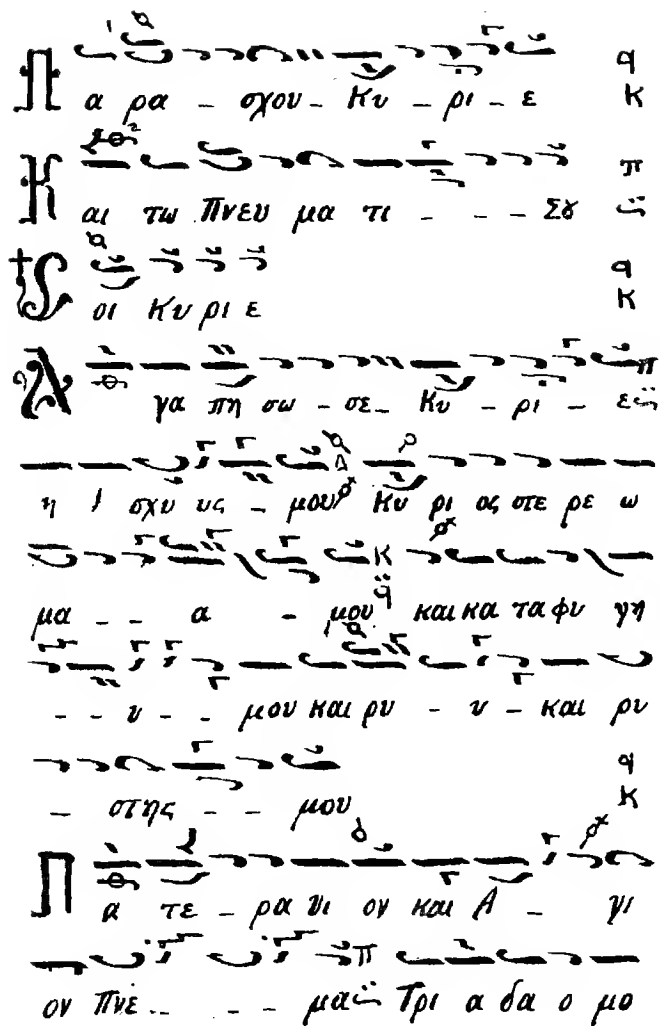 Πα ρα - σχου - Κυ - ρι - ε
Και τω Πνευ μα τι - - - Σȣ
Σοι Κυ ρι ε
Αγα πη σω - σε - Κυ - ρι - ε
η Ι σχυ υς - μου Κυ ρι ος στε ρε ω
μα - - α - μου και κα τα φυ γη
- - υ - - μου και ρυ - υ - και ρυ
- στης - - μου
Πα τε - ρα Υι ον και Α - γι
ον Πνε - - - - μα Τρι α δα ο μο